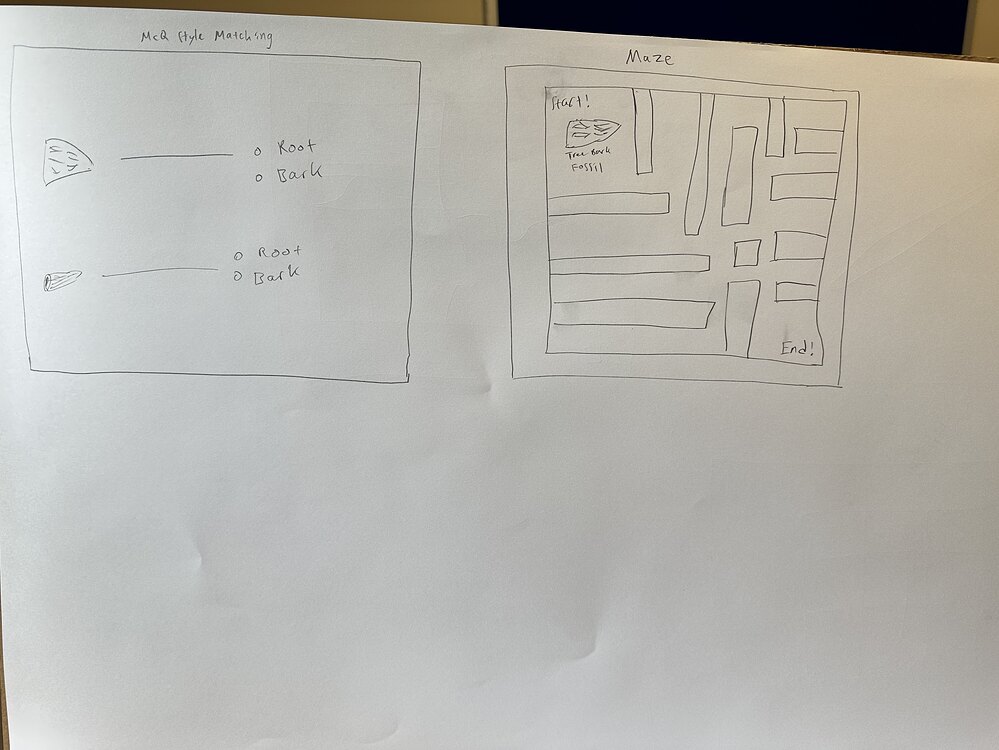 McQ Style Matching
Root
Bark
Root
Bark
Maze
Start!
Tree Bark
Fossil
End!